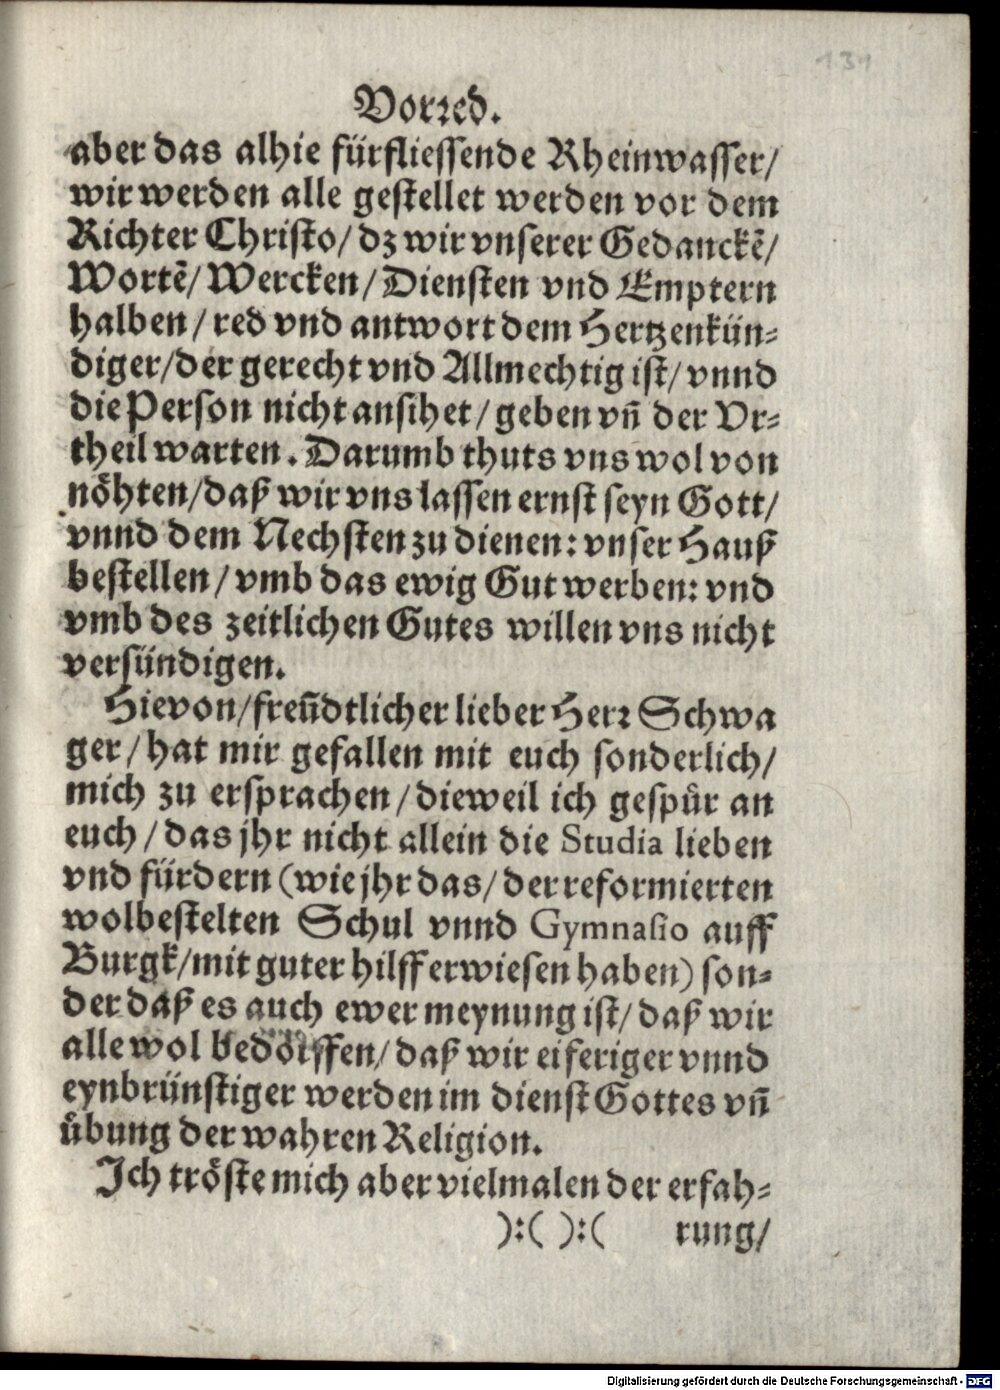 131
Vorꝛed.
aber das alhie fürfliessende Rheinwasser/
wir werden alle gestellet werden vor dem
Richter Christo/ dz wir vnserer Gedanckẽ/
Wortẽ/ Wercken/ Diensten vnd Emptern
halben/ red vnd antwort dem Hertzenkün⸗
diger/ der gerecht vnd Allmechtig ist/ vnnd
die Person nicht ansihet/ geben vñ der Vr⸗
theil warten. Darumb thuts vns wol von
nöhten/ daß wir vns lassen ernst seyn Gott/
vnnd dem Nechsten zu dienen: vnser Hauß
bestellen/ vmb das ewig Gut werben: vnd
vmb des zeitlichen Gutes willen vns nicht
versündigen.
Hievon/ freũdtlicher lieber Herꝛ Schwa
ger/ hat mir gefallen mit euch sonderlich/
mich zu ersprachen/ dieweil ich gespür an
euch/ das jhr nicht allein die Studia lieben
vnd fürdern (wie jhr das/ der reformierten
wolbestelten Schul vnnd Gymnasio auff
Burgk/ mit guter hilff erwiesen haben) son⸗
der daß es auch ewer meynung ist/ daß wir
alle wol bedörffen/ daß wir eiferiger vnnd
eynbrünstiger werden im dienst Gottes vñ
übung der wahren Religion.
Ich tröste mich aber vielmalen der erfah⸗
):( ):( rung/
Digitalisierung gefördert durch die Deutsche Forschungsgemeinschaft - DFG